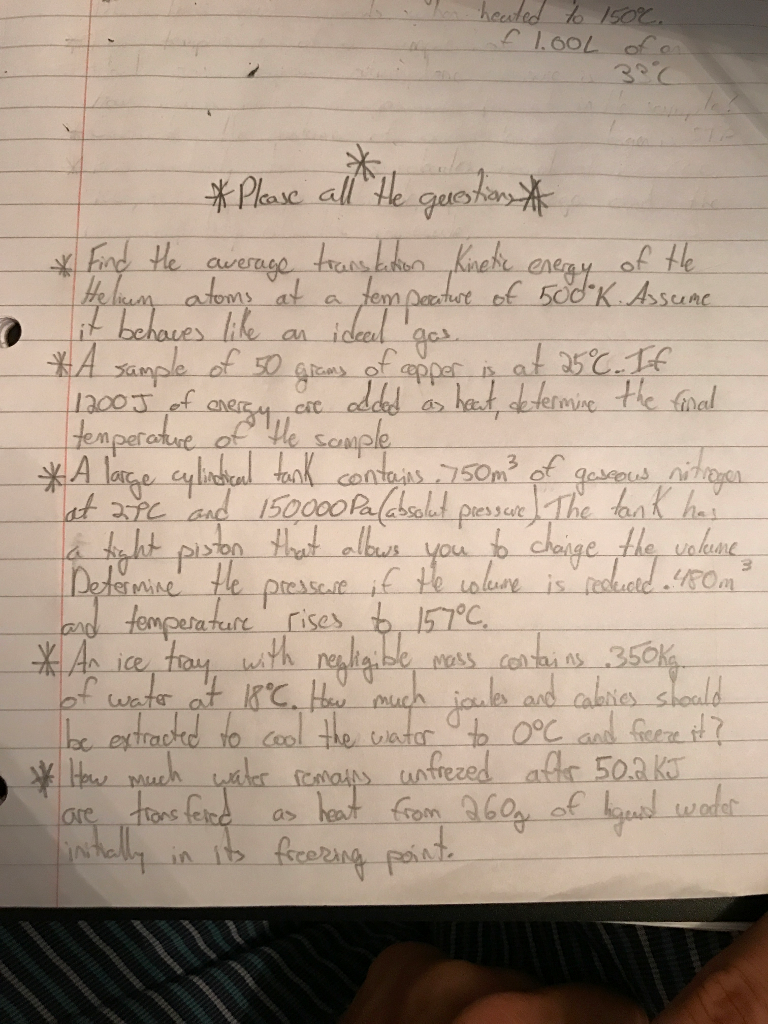 heated to 150°C.
f 1.00L of
*
*Please all the questions*
* Find the average translation Kinetic energy of the
Helium atoms at a temperature of 500°K. Assume
it behaves like an ideal gas.
*A sample of 50 grams of copper is at 25°C. If
1200J of energy are added as heat, determine the final
temperature of the sample
*A large cylindrical tank contains .750m³ of gaseous nitrogen
at 27°C and 150000Pa(absolut pressure). The tank has
a tight piston that allows you to change the volume
Determine the pressure if the volume is reduced .480m³
and temperature rises to 157°C.
* An ice tray with negligible mass contains .350Kg
of water at 18°C. How much joules and calories should
be extracted to cool the water to 0°C and freeze it?
* How much water remains unfrezed after 50.2KJ
are transfered as heat from 260g of liquid water
initially in its freezing point.